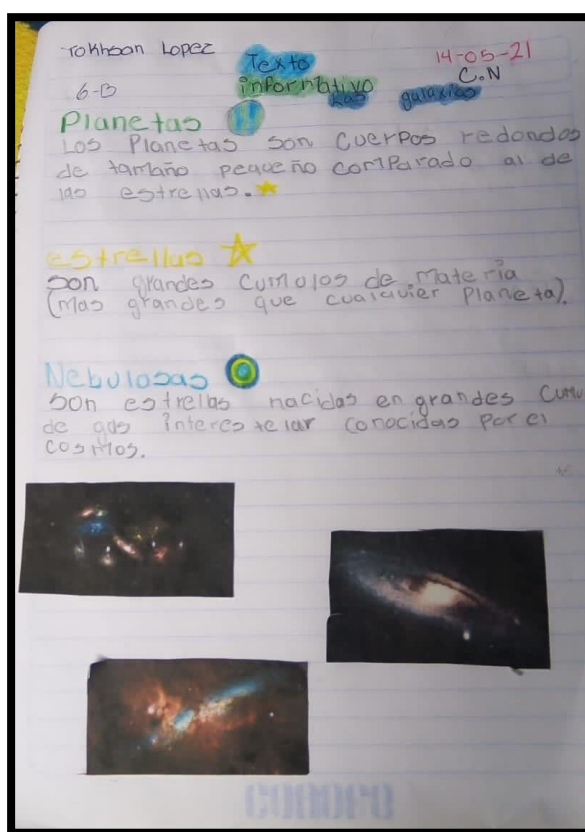 Yokhsan Lopez
Texto
14-05-21
6-B
informativo
C.N
Las galaxias
Planetas
Los Planetas son cuerpos redondos
de tamaño pequeño comparado al de
las estrellas.
estrellas
son grandes cumulos de materia
(mas grandes que cualquier Planeta).
Nebulosas
son estrellas nacidas en grandes cumu
de gas interestelar conocidas por el
cosmos.